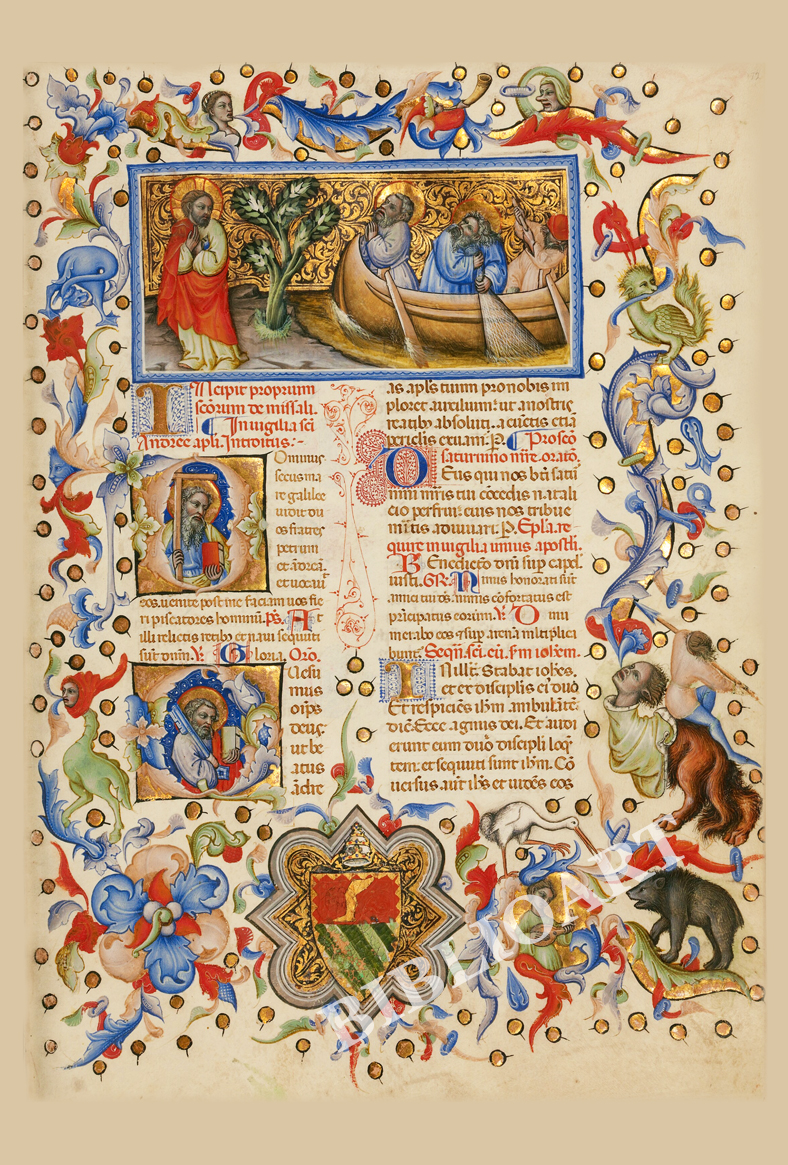 Incipit proprium
scōrum de missali.
In uigilia sci
Andree apli. Introitus:-
Ominus
secus ma
re galilee
uidit du
os fratres
petrum
et andreā
et uocaui
eos. uenite post me faciam uos fie
ri piscatores hominū. Ps. At
illi relictis retib' et naui sequuti
sūt dnm. V. Gloria. Oro.
uesu
mus
oīps
deus
ut be
atus
ādre
as apls tuum pro nobis im
ploret auxilium: ut a nostris
reatib' absoluti. a cūctis etiā
periclis exuam. P. Pro scō
saturnino mr̄e. orato.
Eus qui nos bti satu
nini mris tui cōcedis natali
cio perfrui: eius nos tribue
mītis adiuuari. P. Epla. re
quire in uigilia unius apostli.
Benedictio dnī sup caput
iusti. GR. Nimis honorati sūt
amici tui ds. nimis cōfortatus est
prīcipatus eorum. V. Di nu
merabo eos et sup arenā mltiplica
bunt. Sequn. sci. eu. s'm ioħem.
In illt. Stabat ioħes.
et ex discipulis ei' duo
Et respiciēs iħm ambulātē
dic. Ecce agnus dei. Et audi
erunt eum duo discipli loq
tem: et sequuti sunt iħm. Cō
uersus aūt iħs et uidēs eos
BIBLIOART